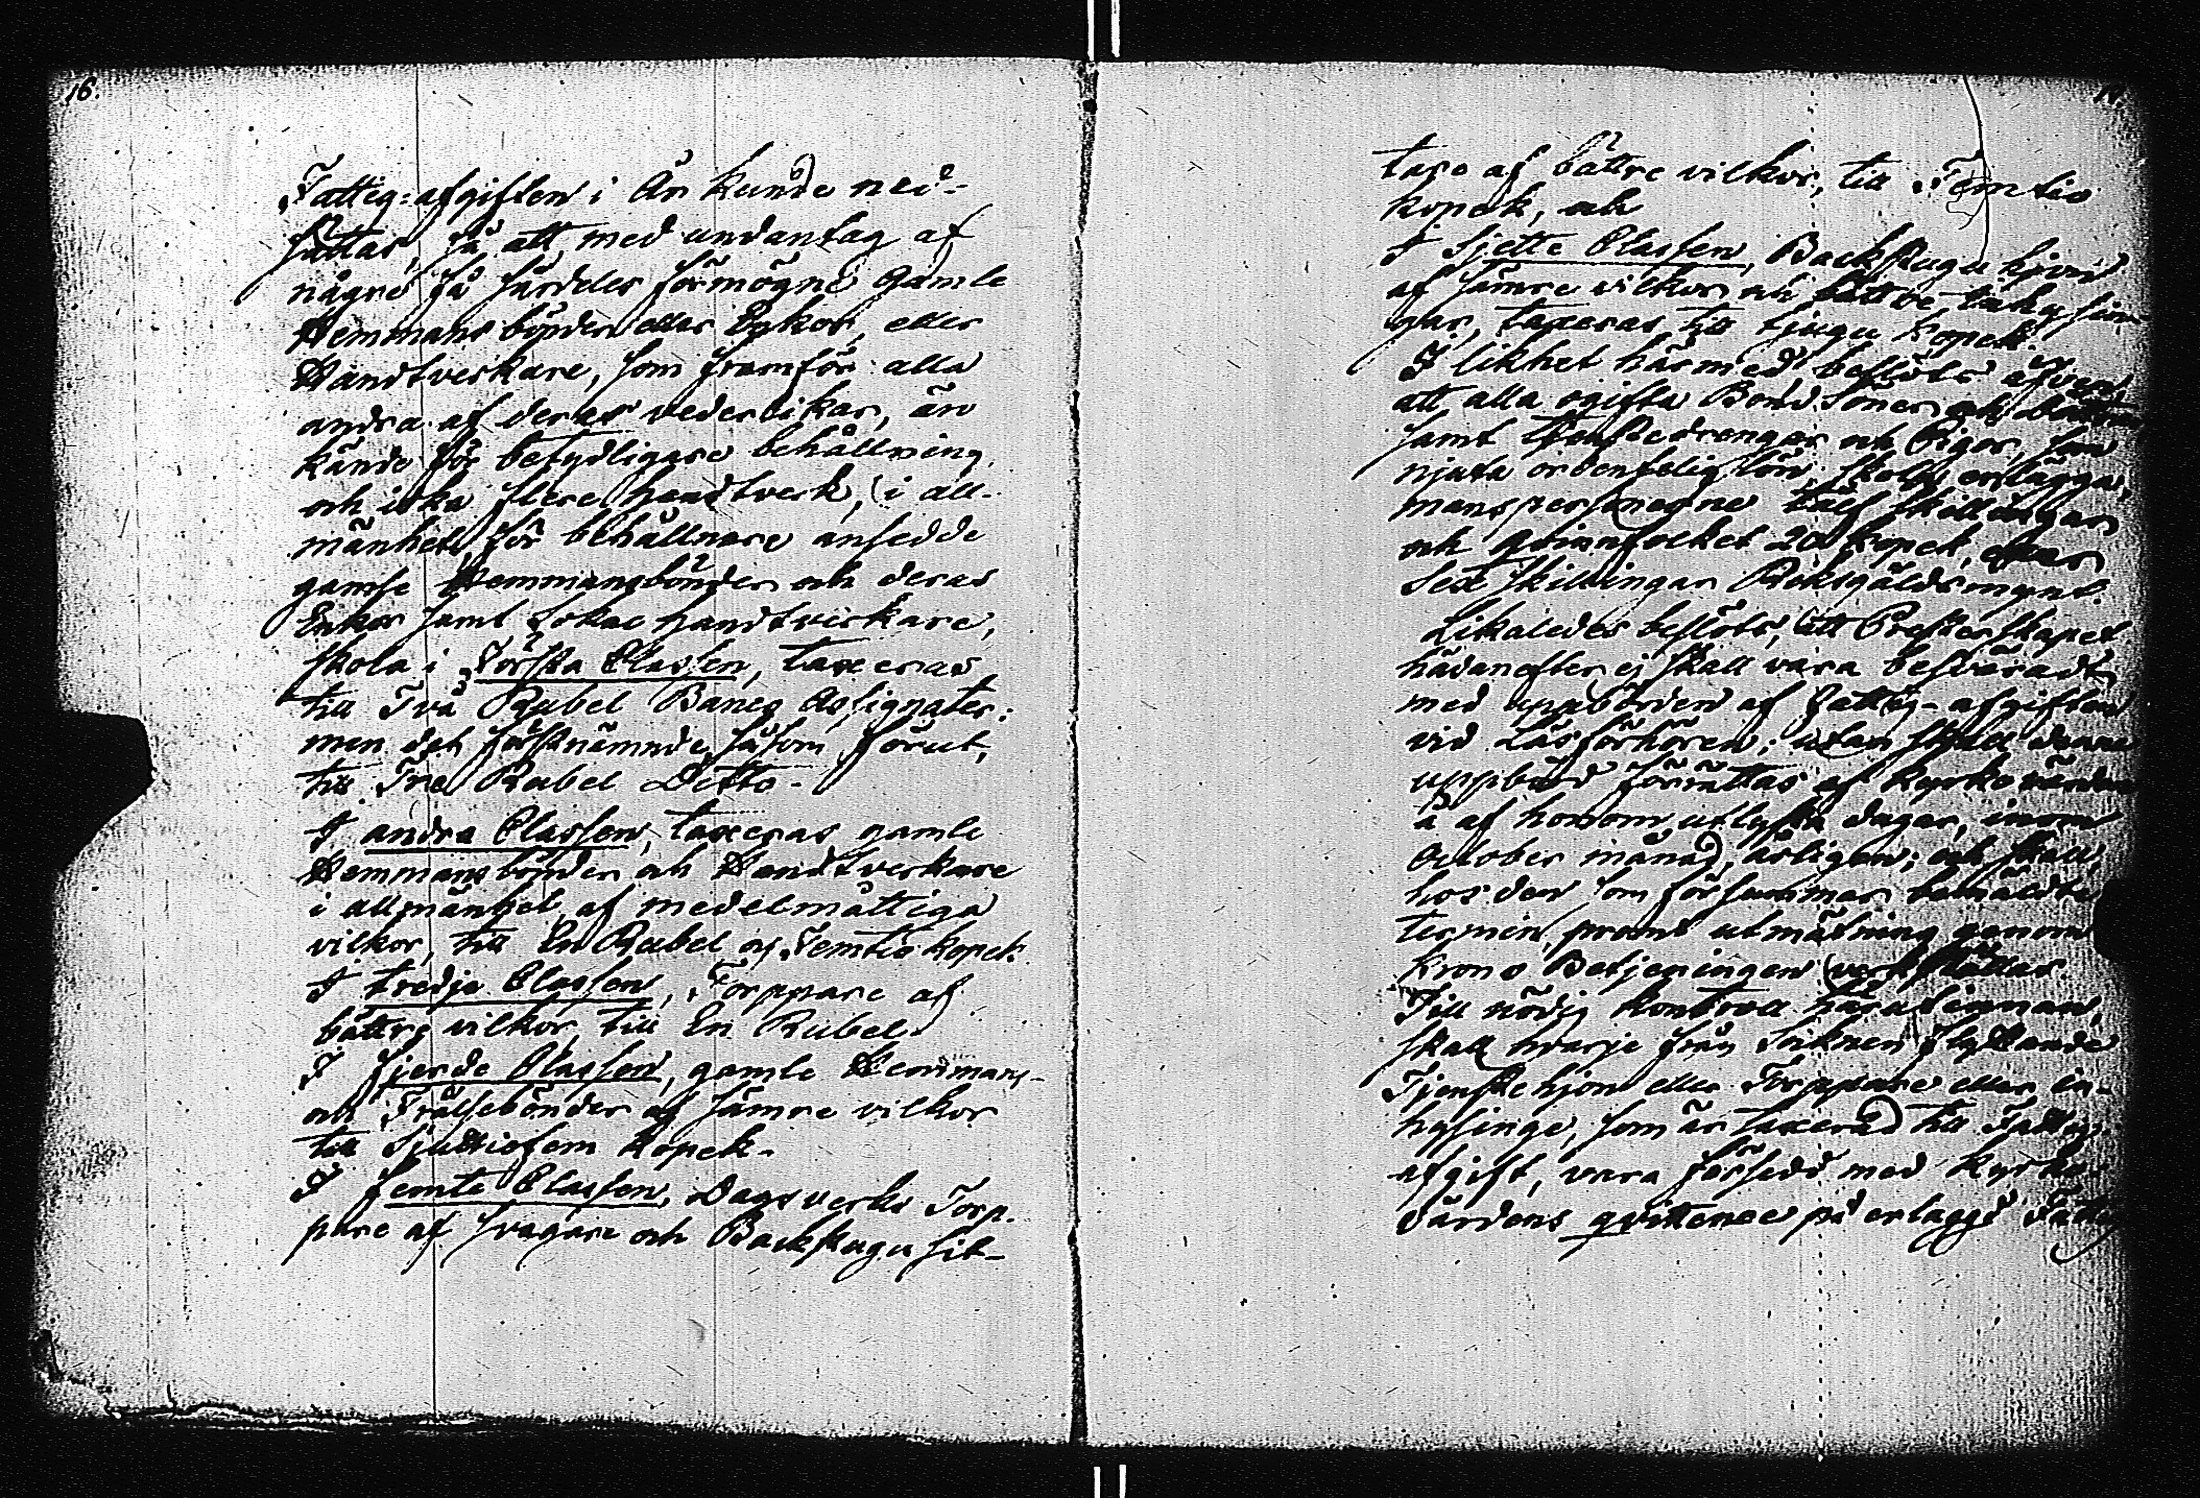 16.
Fattig-afgiften i År kunde ned-
sättas, så att med undantag af
någre få särdeles förmögne gamle
Hemmans bönder eller Enkor, eller
Handtverkare, som framför alla
andra af deras vederlikar, äro
kände för betydligare behållning
och idka flere handtverk, i all-
mänhet för behållnare ansedde
gamle Hemmansbönder och deras
Enkor samt Sokne handtverkare,
skola i Första Classen, taxeras
till Två Rubel Banco Assignater;
men de förstnämnde, såsom förut,
till Tre Rubel Ditto.
I andra Classen, taxeras gamle
Hemmans bönder och Handtverkare
i allmänhet af medelmåttiga
vilkor, till En Rubel och Femtio kopek.
I tredje Classen, Torppare af
bättre vilkor, till En Rubel.
I fjerde Classen, gamle Hemmans-
och Frälsebönder af sämre vilkor
till Sjuttiofem kopek.
I femte Classen, Dagsverks Torp-
pare af svagare och Backstugu sit-
tare af bättre vilkor, till Femtio
kopek, och
I Sjette Classen, Backstugu hjon
af sämre vilkor och bättre inhysin-
gar, taxeras till tjugu kopek.
I likhet härmed beslöts äfven
att alla ogifta Bond Söner och
samt Tjenstedrengar och Pigor, som
njuta ordentelig lön, skola erlägga,
manspersonerne tolf skillingar
och qvinnfolket 20 kopek, eller
Sex skillingar Riksgäldsmynt.
Likaledes beslöts, att Presterskapet
hädanefter ej skall vara besväradt
med uppbörden af fattig-afgiften
vid Läsförhören; utan skall denne
uppbörd förrättas af kyrkovärden
å af honom utlysta dagar, inom
October månad, årligen; och skall,
hos den som försummar bemäldte
termin, promt utmätning genom
Krono Betjeningen verkställas.
Till nödig kontroll häraf
skall hvarje från Soknen flyttande
Tjenstehjon eller Torppare eller in-
hysinge, som är taxerad till Fattig
afgift, vara försedd med kyrko-
värdens qvittence på erlaggd Fattig